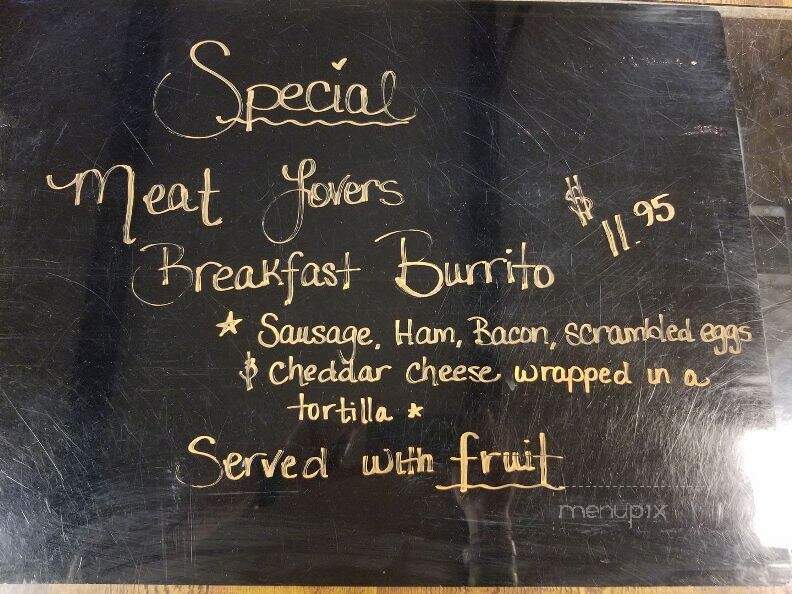 Special
Meat Lovers
$ 11.95
Breakfast Burrito
* Sausage, Ham, Bacon, scrambled eggs
& Cheddar cheese wrapped in a
tortilla *
Served with fruit
menupix